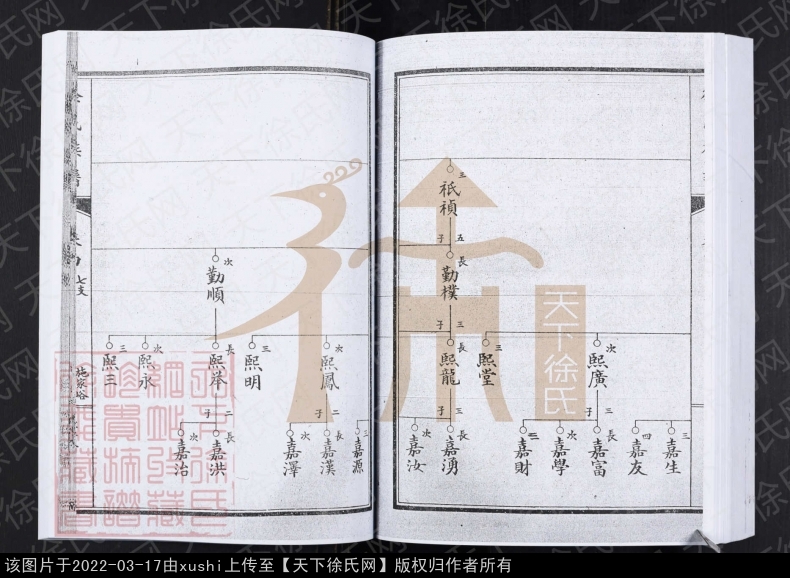 三
祇禎
五子
長
勤樸
三子
長
熙龍
三
熙堂
次
熙廣
三子
三子
三
嘉生
四
嘉友
長
嘉富
次
嘉學
三
嘉財
長
嘉湧
次
嘉汝
次
勤順
次
熙鳳
三
熙明
長
熙举
次
熙永
三
熙三
二子
二子
三
嘉源
長
嘉漢
次
嘉澤
長
嘉洪
次
嘉治
七支
施家峪
天下徐氏
该图片于2022-03-17由xushi上传至【天下徐氏网】版权归作者所有